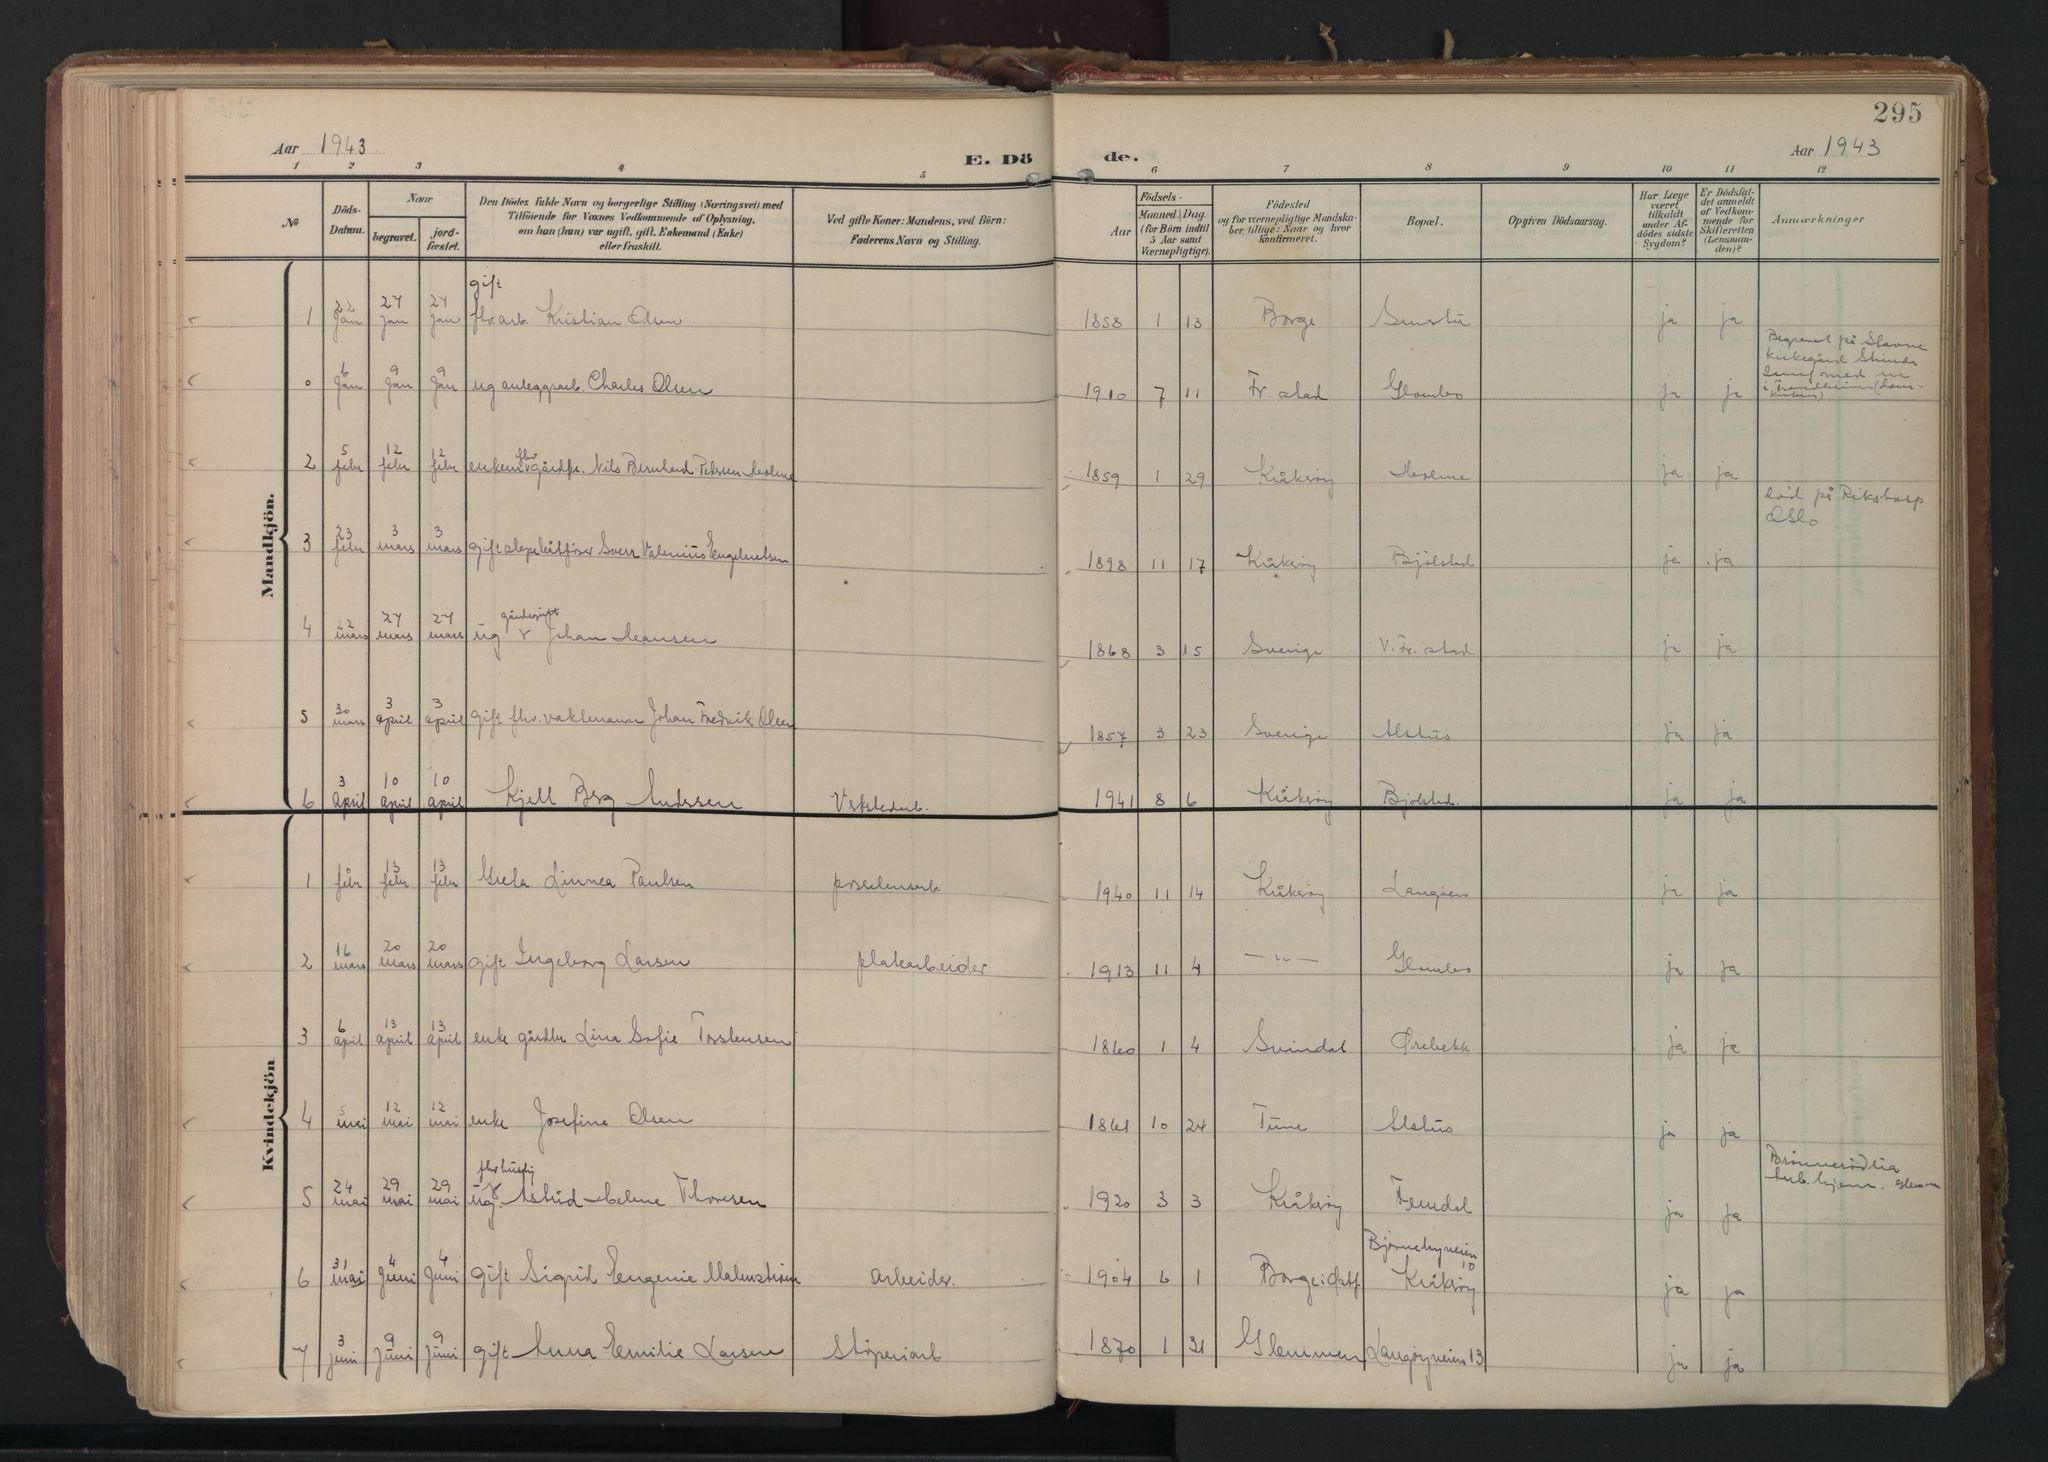 295
Aar 1943
E. Dö
de.
Aar 1943
1 2 3 4 5 6 7 8 9 10 11 12
No
Döds-
Datum.
Naar
begravet.
jord-
fæstet.
Den Dödes fulde Navn og borgerlige Stilling (Næringsvei) med
Tilföiende for Voxnes Vedkommende af Oplysning,
om han (hun) var ugift, gift, Enkemand (Enke)
eller fraskilt.
Ved gifte Koner: Mandens, ved Börn:
Faderens Navn og Stilling.
Födsels-
Aar
Maaned. Dag.
(for Börn indtil
5 Aar samt
Værnepligtige).
Födested
og for værnepligtige Mandska-
ber tillige: Naar og hvor
konfirmeret.
Bopæl.
Opgiven Dödsaarsag.
Har Læge
været
tilkaldt
under Af-
dödes sidste
Sygdom?
Er Dödsfal-
det anmeldt
af Vedkom-
mende for
Skifteretten
(Lensman-
den)?
Anmærkninger
Mandkjön.
gift
1 22 Jan 27 Jan 27 Jan fhv. arb. Kristian Olsen 1858 1 13 Borge ja ja
Begravet på Stavne
kirkegård
0 6 Jan 9 Jan 9 Jan ug anleggsarb. Charles Olsen 1910 7 11 Fr.stad Glombo ja ja
i Trondheim (dom-
kirken)
2 5 febr 12 febr 12 febr enkem fhv gårdbr. Nils Bernhard Petersen 1859 1 29 Kråkerøy ja ja
död på Rikshosp
Oslo
3 23 febr 3 mars 3 mars gift slepebåtfører Valenius Engebretsen 1898 11 17 Kråkerøy Bjölstad ja ja
4 22 mars 27 mars 27 mars ug Johan Hansen 1868 3 15 Sverige V. Fr.stad ja ja
5 30 mars 3 april 3 april gift fhv. vaktmann Johan Fredrik Olsen 1857 3 23 Sverige Alshus ja ja
6 3 april 10 april 10 april Kjell Berg Andersen Verkstedarb. 1941 8 6 Kråkerøy Bjölstad. ja ja
Kvindekjön
1 febr 13 febr 13 febr Greta Linnea Paulsen porselensarb 1940 11 14 Kråkerøy Langøen ja ja
2 16 mars 20 mars 20 mars gift Ingeborg Larsen platearbeider 1913 11 4 — " — Glombo ja ja
3 6 april 13 april 13 april enke gårdbr Lina Sofie Torstensen 1860 1 4 Svindal Ørebekk ja ja
4 5 mai 12 mai 12 mai enke Josefine Olsen 1861 10 24 Tune Alshus ja ja
Brönnerödlia
tub.hjem. Glemmen
5 24 mai 29 mai 29 mai ug. Astrid Helene Thoresen 1920 3 3 Kråkerøy Femdal ja ja
6 31 mai 4 Juni 4 Juni gift Sigrid Eugenie Malmstrøm arbeider. 1904 6 1 Borge i Østf. Kråkerøy 10 ja ja
7 3 juni 9 Juni 9 Juni gift Anna Emilie Larsen Støperiarb 1870 1 31 Glemmen Langøyveien 13 ja ja